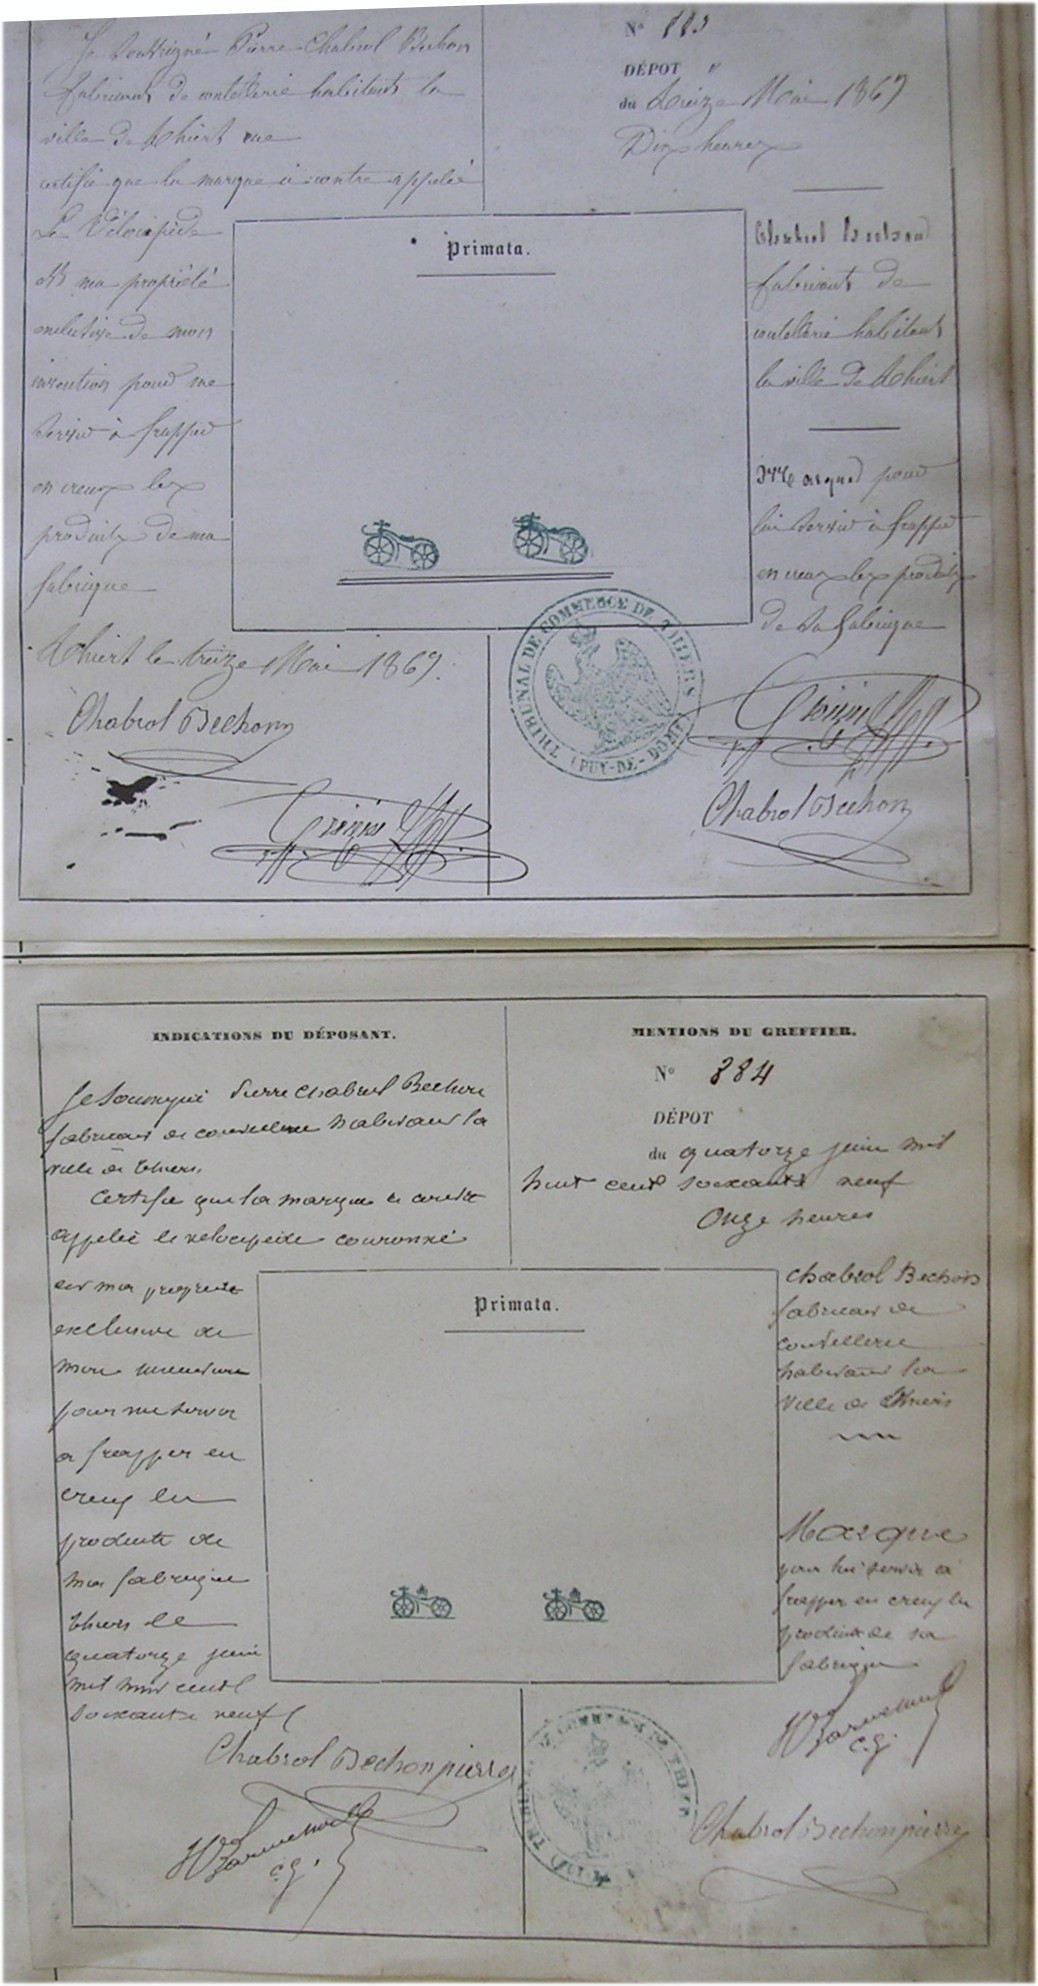 Je soussigné Pierre Chabrol Bechon
fabricant de coutellerie habitant la
ville de Thiert rue
certifie que la marque ci contre appelée
Le Vélocipède
est ma propriété
exclusive de mon
invention pour me
servir à frapper
en creux les
produits de ma
fabrique
Thiert le treize Mai 1869.
Chabrol Bechon
N°
DÉPOT
du treize Mai 1869
Dix heures
Primata.
Chabrol Bechon
fabricant de
coutellerie habitant
la ville de Thiert
Marque pour
lui servir à frapper
en creux les produits
de sa fabrique
TRIBUNAL DE COMMERCE DE THIERS
(PUY-DE-DOME)
Chabrol Bechon
INDICATIONS DU DÉPOSANT.
Je soussigné Pierre Chabrol Bechon
fabricant de coutellerie habitant la
ville de Thiers.
Certifie que la marque ci contre
appelée le velocipède couronné
est ma propriété
exclusive de
mon invention
pour me servir
a frapper en
creux les
produits de
ma fabrique
Thiers le
quatorze juin
mil huit cent
soixante neuf
Chabrol Bechon pierre
c.g.
MENTIONS DU GREFFIER.
N° 884
DÉPOT
du quatorze juin mil
huit cent soixante neuf
Onze heures
Primata.
Chabrol Bechon
fabricant de
coutellerie
habitant la
ville de Thiers
Marque
pour lui servir a
frapper en creux les
produits de sa
fabrique
c.g.
Chabrol Bechon pierre